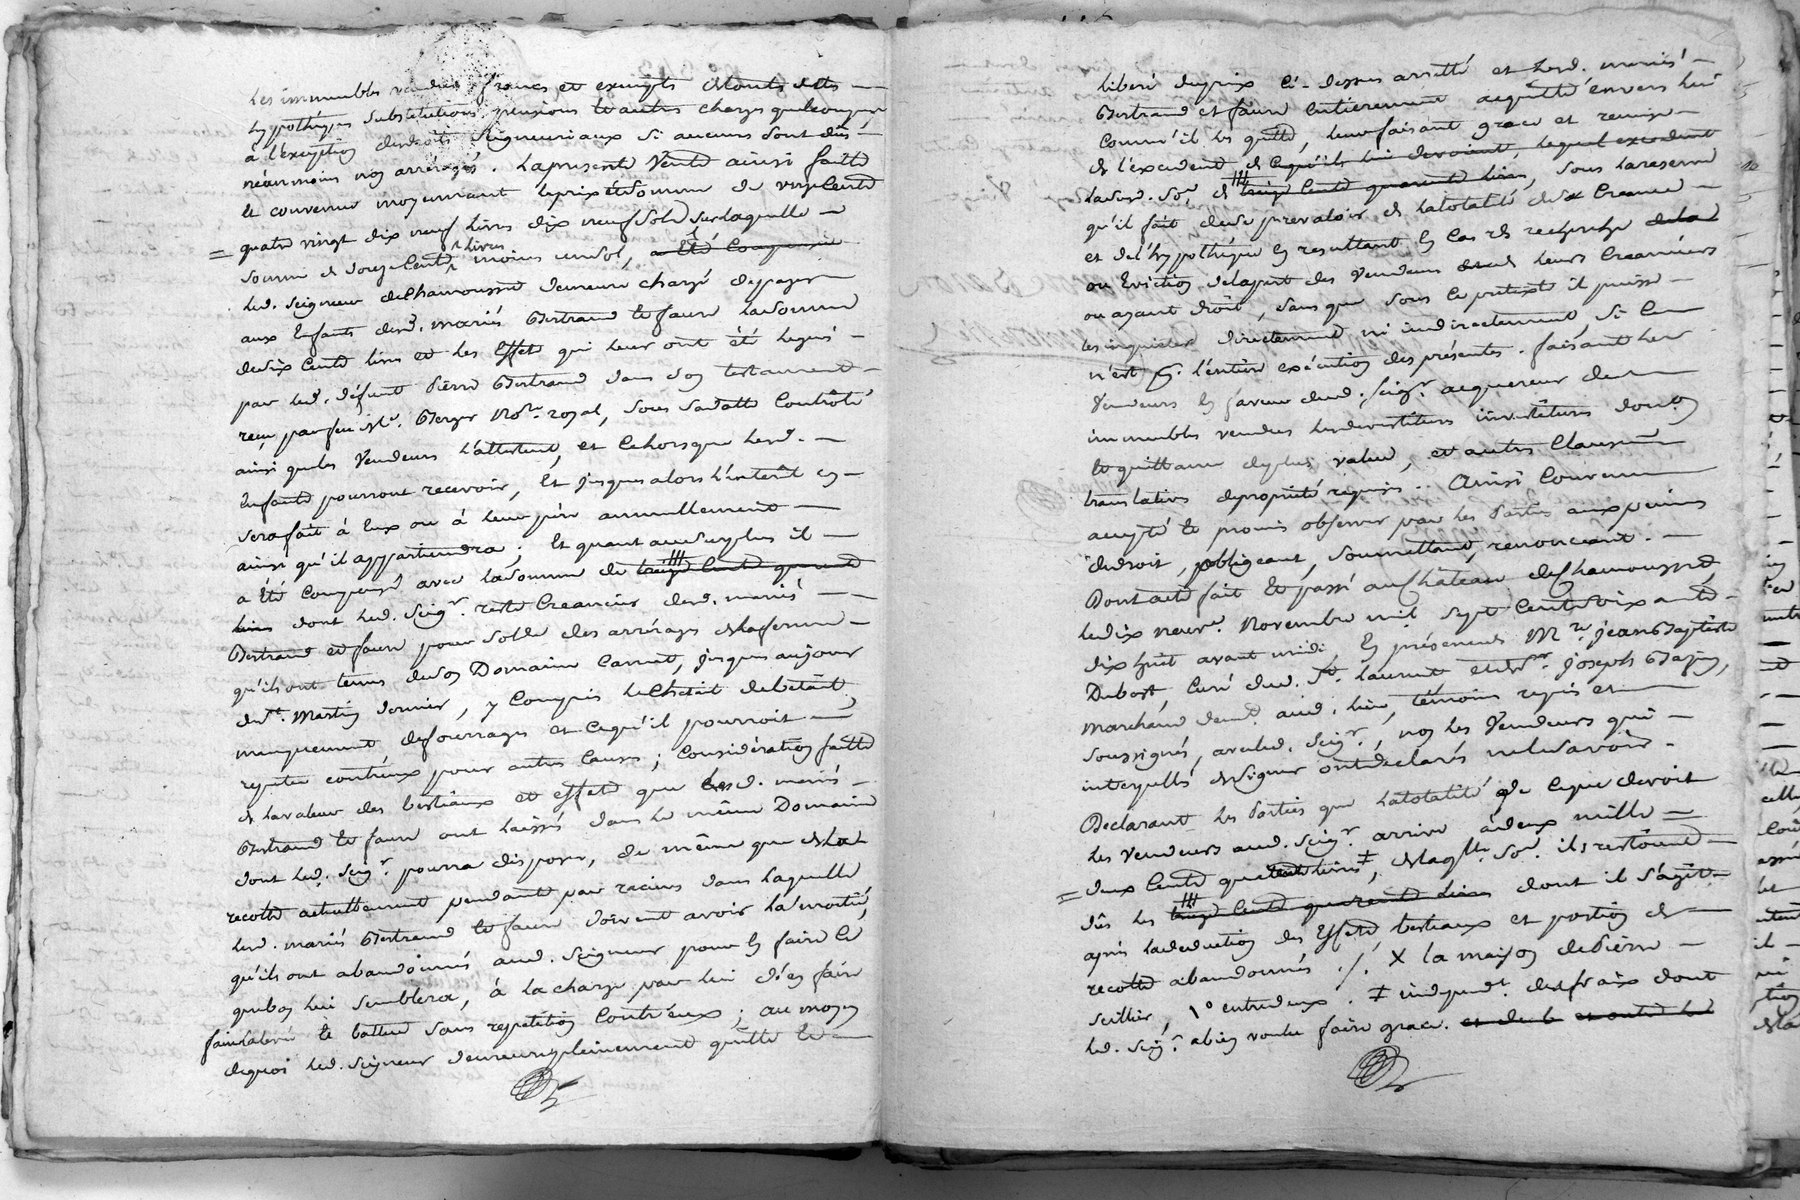 les immeubles vendus francs et exempts de touts dettes
hypothèques substitutions pensions et autres charges quelconques
à l'exception des droits seigneuriaux si aucuns sont dûs
néanmoins non arréragés. La presente vente ainsi faitte
et convenue moyennant le prix et somme de
quatre vingt dix neuf livres dix neuf sols, sur laquelle
somme de douze cents livres moins un sol, a été compensée
led. seigneur de Chamousset demeure chargé de payer
aux enfants desd. mariés Bertrand et faure la somme
de six cents livres et les effets qui leur ont été legués
par led. défunt Pierre Bertrand dans son testament
reçu par feu Me. Berger Nore. royal, sous sa datte Contrôlé
ainsi que les vendeurs l'attestent, et ce lorsque lesd.
enfants pourront recevoir, et jusques alors l'interêt en
sera fait à eux ou à leur père annuellement
ainsi qu'il appartiendra; et quant au surplus il
a été compensé avec la somme de treize cents quarante
livres dont led. seigr. reste Creancier desd. mariés
Bertrand et faure pour solde des arrérages de la ferme
qu'ils ont tenus de son Domaine Carret, jusques au jour
de St. Martin dernier, y compris le Cheptel de bétail
manquement de fourrages et ce qu'il pourroit
repeter contr'eux pour autres causes; Considération faitte
de la valeur des bestiaux et effets que lesd. mariés
Bertrand et faure ont laissés dans le même Domaine
dont led. seigr. pourra disposer, de même que de la
recolte actuellement pendante par racines dans laquelle
lesd. mariés Bertrand et faure doivent avoir la moitié,
qu'ils ont abandonnés aud. seigneur pour en faire ce
que bon lui semblera, à la charge par lui d'en faire
faire la levée et battue sans repetition contr'eux; au moyen
de quoi led. seigneur demeure pleinement quitte et
libéré du prix ci-dessus arretté et lesd. mariés
Bertrand et faure entierement acquittés envers lui
comm'il les quitte, leur faisant grace et remise
de l'excedent de ce qu'ils lui devoient, lequel excedent
lad. so. de treize cents quarante livres, sous la reserve
qu'il fait de se prevaloir de la totalité de sa Creance
et de l'hypothèque en resultant en cas de recherche de la
ou eviction de la part des vendeurs leurs Creanciers
ou ayant droit, sans que sous ce pretexte il puisse
les inquieter directement ni indirectement, si ce
n'est pr. l'entière exécution des présentes. faisant les
vendeurs en faveur dud. seigr. acquereur des
immeubles vendus les devestitures investitures donnon
et quittance de plus value, et autres clauses
translatives de propriété requises. Ainsi convenu
accepté et promis observer par les parties aux peines
de droit, obligeant, soumettant, renonceant.
Dont acte fait et passé au château de Chamousset,
le dix neuve. Novembre mil sept cents soixante
dix huit avant midi, en présence de Mre. jean Baptiste
Dubost, curé dud. St. Laurent et de Sr. joseph Bazin,
marchand demt. aud. lieu, témoins requis et
soussignés, avec led. seigr., non les vendeurs qui
interpellés de signer ont déclarés ne le savoir.
Declarant les Parties que la totalité de ce que devoit
les vendeurs aud. seigr. arrive à deux mille
deux cents quarante livres ‡, de laqlle. soe. ils restoient
dûs les treize cents quarante livres dont il s'agit
après la deduction des effets bestiaux et portion de
recolte abandonnés ./. X la maison de Pierre
Seillier, 1° entredeux. ‡ independt. des fraix dont
led. seigr. a bien voulu faire grace.